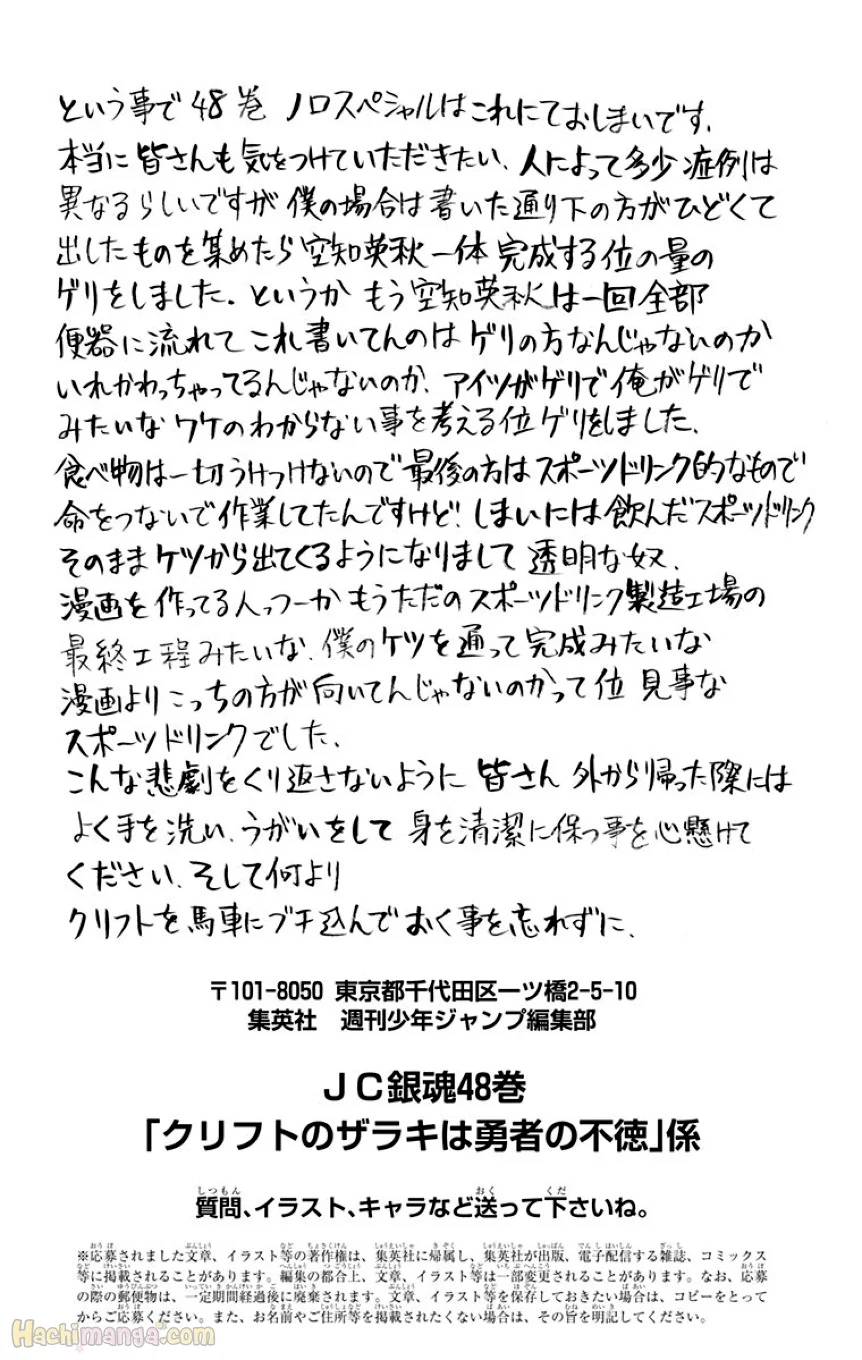 という事で48巻 ノロスペシャルはこれにておしまいです.
本当に皆さんも気をつけていただきたい、人によって多少症例は
異なるらしいですが僕の場合は書いた通り下の方がひどくて
出したものを集めたら空知英秋一体完成する位の量の
ゲリをしました. というか もう空知英秋は一回全部
便器に流れて これ書いてんのは ゲリの方なんじゃないのか
いれかわっちゃってるんじゃないのか、アイツがゲリで俺がゲリで
みたいな ワケのわからない事を考える位ゲリをしました.
食べ物は一切うけつけないので最後の方はスポーツドリンク的なもので
命をつないで作業してたんですけど! しまいには飲んだスポーツドリンク
そのままケツから出てくるようになりまして 透明な奴.
漫画を作ってる人っつーか もうただのスポーツドリンク製造工場の
最終工程みたいな. 僕のケツを通って完成みたいな
漫画よりこっちの方が向いてんじゃないのかって位 見事な
スポーツドリンクでした.
こんな悲劇をくり返さないように 皆さん 外から帰った際には
よく手を洗い、うがいをして 身を清潔に保つ事を心懸けて
ください. そして何より
クリフトを馬車にブチ込んでおく事を忘れずに.
〒101-8050 東京都千代田区一ツ橋2-5-10
集英社 週刊少年ジャンプ編集部
JC銀魂48巻
「クリフトのザラキは勇者の不徳」係
質問、イラスト、キャラなど送って下さいね。
※応募されました文章、イラスト等の著作権は、集英社に帰属し、集英社が出版、電子配信する雑誌、コミックス
等に掲載されることがあります。編集の都合上、文章、イラスト等は一部変更されることがあります。なお、応募
の際の郵便物は、一定期間経過後に廃棄されます。文章、イラスト等を保存しておきたい場合は、コピーをとって
からご応募ください。また、お名前やご住所等を掲載されたくない場合は、その旨を明記してください。
Hachimanga.com